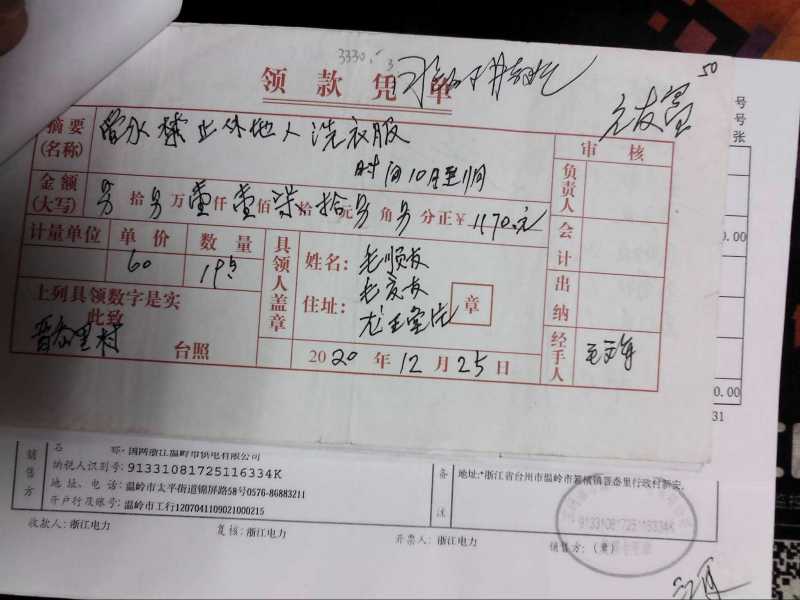 3330.
50
领款凭单
摘要(名称) 管水禁止外地人洗衣服
时间10月至11月
审核
金额(大写) 拾 万壹仟壹佰柒拾元 角 分正￥1170.元
负责人
计量单位 单价 数量
60 19.5
会计
具领人盖章
姓名：
住址：
章
出纳
上列具领数字是实
此致
台照
2020年12月25日
经手人
号
号
张
0.00
0.00
31
销售方
称：国网浙江温岭市供电有限公司
纳税人识别号：91331081725116334K
地址、电话：温岭市太平街道锦屏路58号0576-86883211
开户行及账号：温岭市工行1207041109021000215
备注
地址:*浙江省台州市温岭市箬横镇晋岙里行政村新安。
91331081725116334K
收款人：浙江电力
复核：浙江电力
开票人：浙江电力
销售方：（章）